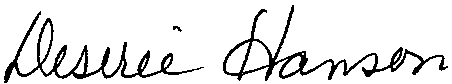 Desirée Hanson